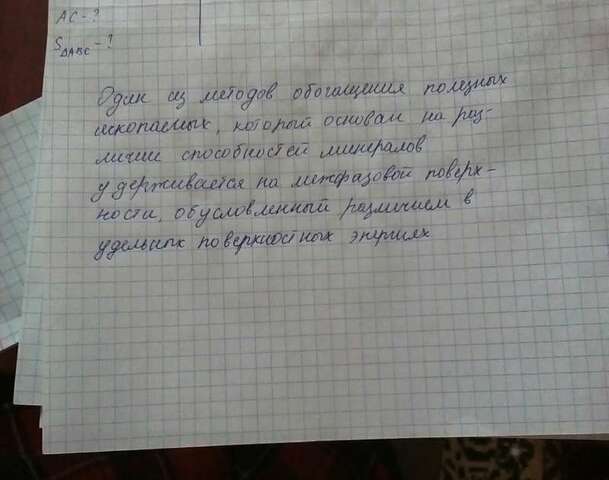 AC - ?
S△ABC - ?
Один из методов обогащения полезных
ископаемых, который основан на раз-
личии способностей минералов
удерживается на межфазовой поверх-
ности, обусловленный различием в
удельных поверхностных энергиях